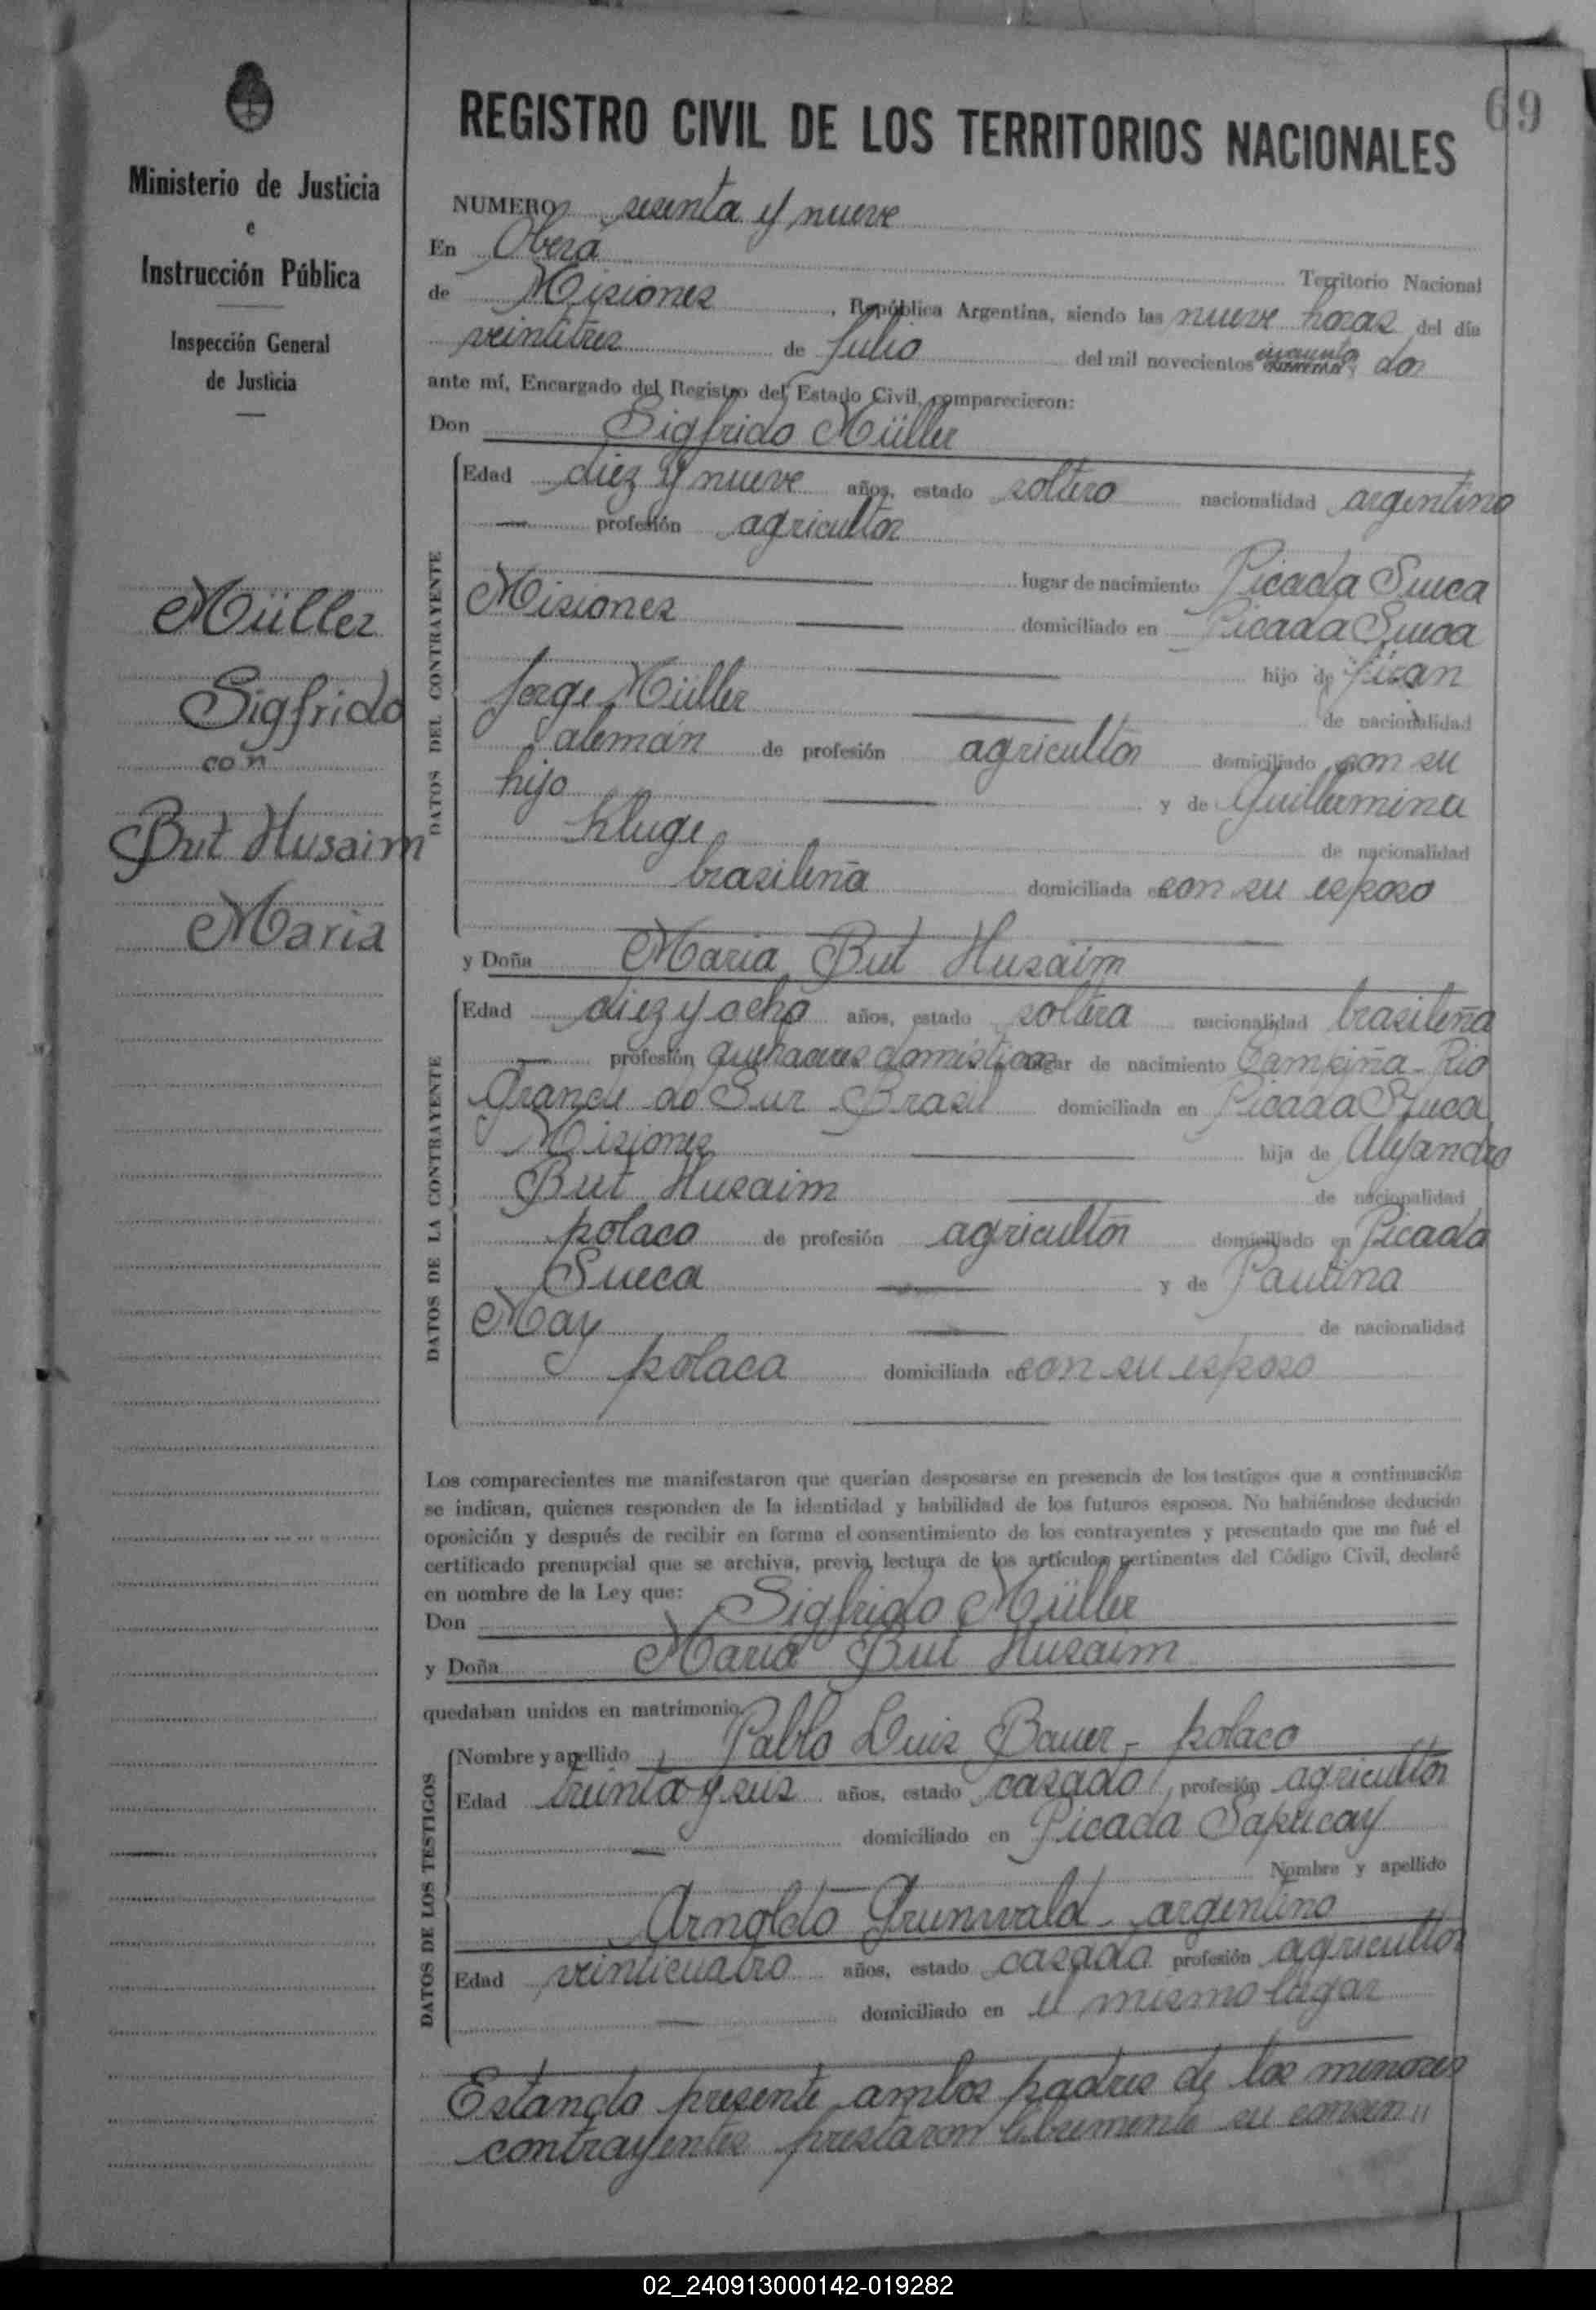 69
REGISTRO CIVIL DE LOS TERRITORIOS NACIONALES
Ministerio de Justicia
e
Instrucción Pública
Inspección General
de Justicia
Müller
Sigfrido
con
But Husaim
Maria
NUMERO sesenta y nueve
En Oberá Territorio Nacional
de Misiones, República Argentina, siendo las nueve horas del día
veintitres de Julio del mil novecientos cuarenta y dos
ante mí, Encargado del Registro del Estado Civil, comparecieron:
Don Sigfrido Müller
DATOS DEL CONTRAYENTE
Edad diez y nueve años, estado soltero nacionalidad argentino
profesión agricultor
lugar de nacimiento Picada Sueca
Misiones domiciliado en Picada Sueca
hijo de Juan
Jorge Müller de nacionalidad
alemán de profesión agricultor domiciliado con su
hijo y de Guillermina
Kluge de nacionalidad
brasileña domiciliada en con su esposo
y Doña Maria But Husaim
DATOS DE LA CONTRAYENTE
Edad diez y ocho años, estado soltera nacionalidad brasileña
profesión quehaceres domésticos lugar de nacimiento Campiña - Rio
Grande do Sur Brasil domiciliada en Picada Sueca
Misiones hija de Alejandro
But Husaim de nacionalidad
polaco de profesión agricultor domiciliado en Picada
Sueca y de Paulina
May de nacionalidad
polaca domiciliada en con su esposo
Los comparecientes me manifestaron que querían desposarse en presencia de los testigos que a continuación
se indican, quienes responden de la identidad y habilidad de los futuros esposos. No habiéndose deducido
oposición y después de recibir en forma el consentimiento de los contrayentes y presentado que me fué el
certificado prenupcial que se archiva, previa lectura de los artículos pertinentes del Código Civil, declaré
en nombre de la Ley que:
Don Sigfrido Müller
y Doña Maria But Husaim
quedaban unidos en matrimonio.
DATOS DE LOS TESTIGOS
Nombre y apellido Pablo Luis Bauer - polaco
Edad treinta y seis años, estado casado, profesión agricultor
domiciliado en Picada Sapucay
Nombre y apellido
Arnoldo Grunwald - argentino
Edad veinticuatro años, estado casado profesión agricultor
domiciliado en el mismo lugar
Estando presente ambos padres de los menores
contrayentes prestaron libremente su consen"
02_240913000142-019282